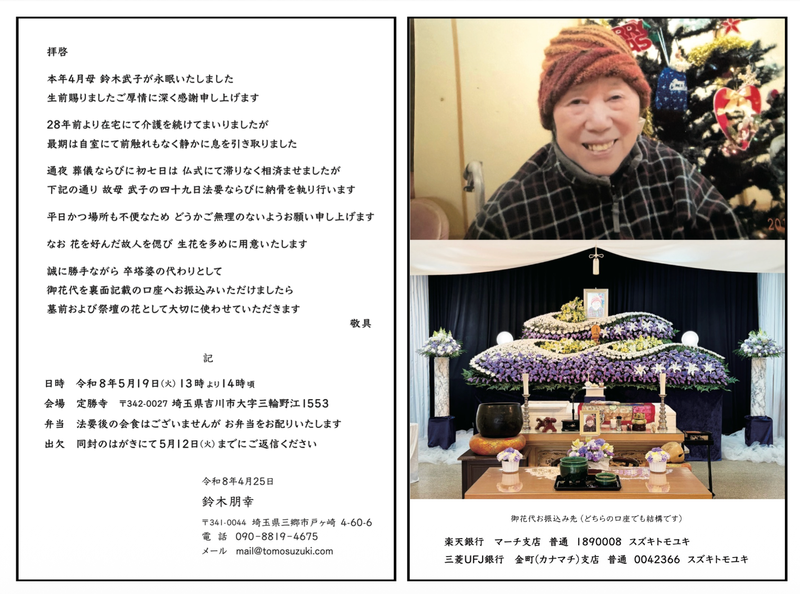 拝啓
本年4月母 鈴木武子が永眠いたしました
生前賜りましたご厚情に深く感謝申し上げます
28年前より在宅にて介護を続けてまいりましたが
最期は自室にて前触れもなく静かに息を引き取りました
通夜 葬儀ならびに初七日は 仏式にて滞りなく相済ませましたが
下記の通り 故母 武子の四十九日法要ならびに納骨を執り行います
平日かつ場所も不便なため どうかご無理のないようお願い申し上げます
なお 花を好んだ故人を偲び 生花を多めに用意いたします
誠に勝手ながら 卒塔婆の代わりとして
御花代を裏面記載の口座へお振込みいただけましたら
墓前および祭壇の花として大切に使わせていただきます
敬具
記
日時 令和8年5月19日(火) 13時より14時頃
会場 定勝寺 〒342-0027 埼玉県吉川市大字三輪野江1553
弁当 法要後の会食はございませんが お弁当をお配りいたします
出欠 同封のはがきにて5月12日(火)までにご返信ください
令和8年4月25日
鈴木朋幸
〒341-0044 埼玉県三郷市戸ヶ崎 4-60-6
電話 090-8819-4675
メール mail@tomosuzuki.com
御花代お振込み先 (どちらの口座でも結構です)
楽天銀行 マーチ支店 普通 1890008 スズキトモユキ
三菱UFJ銀行 金町(カナマチ)支店 普通 0042366 スズキトモユキ